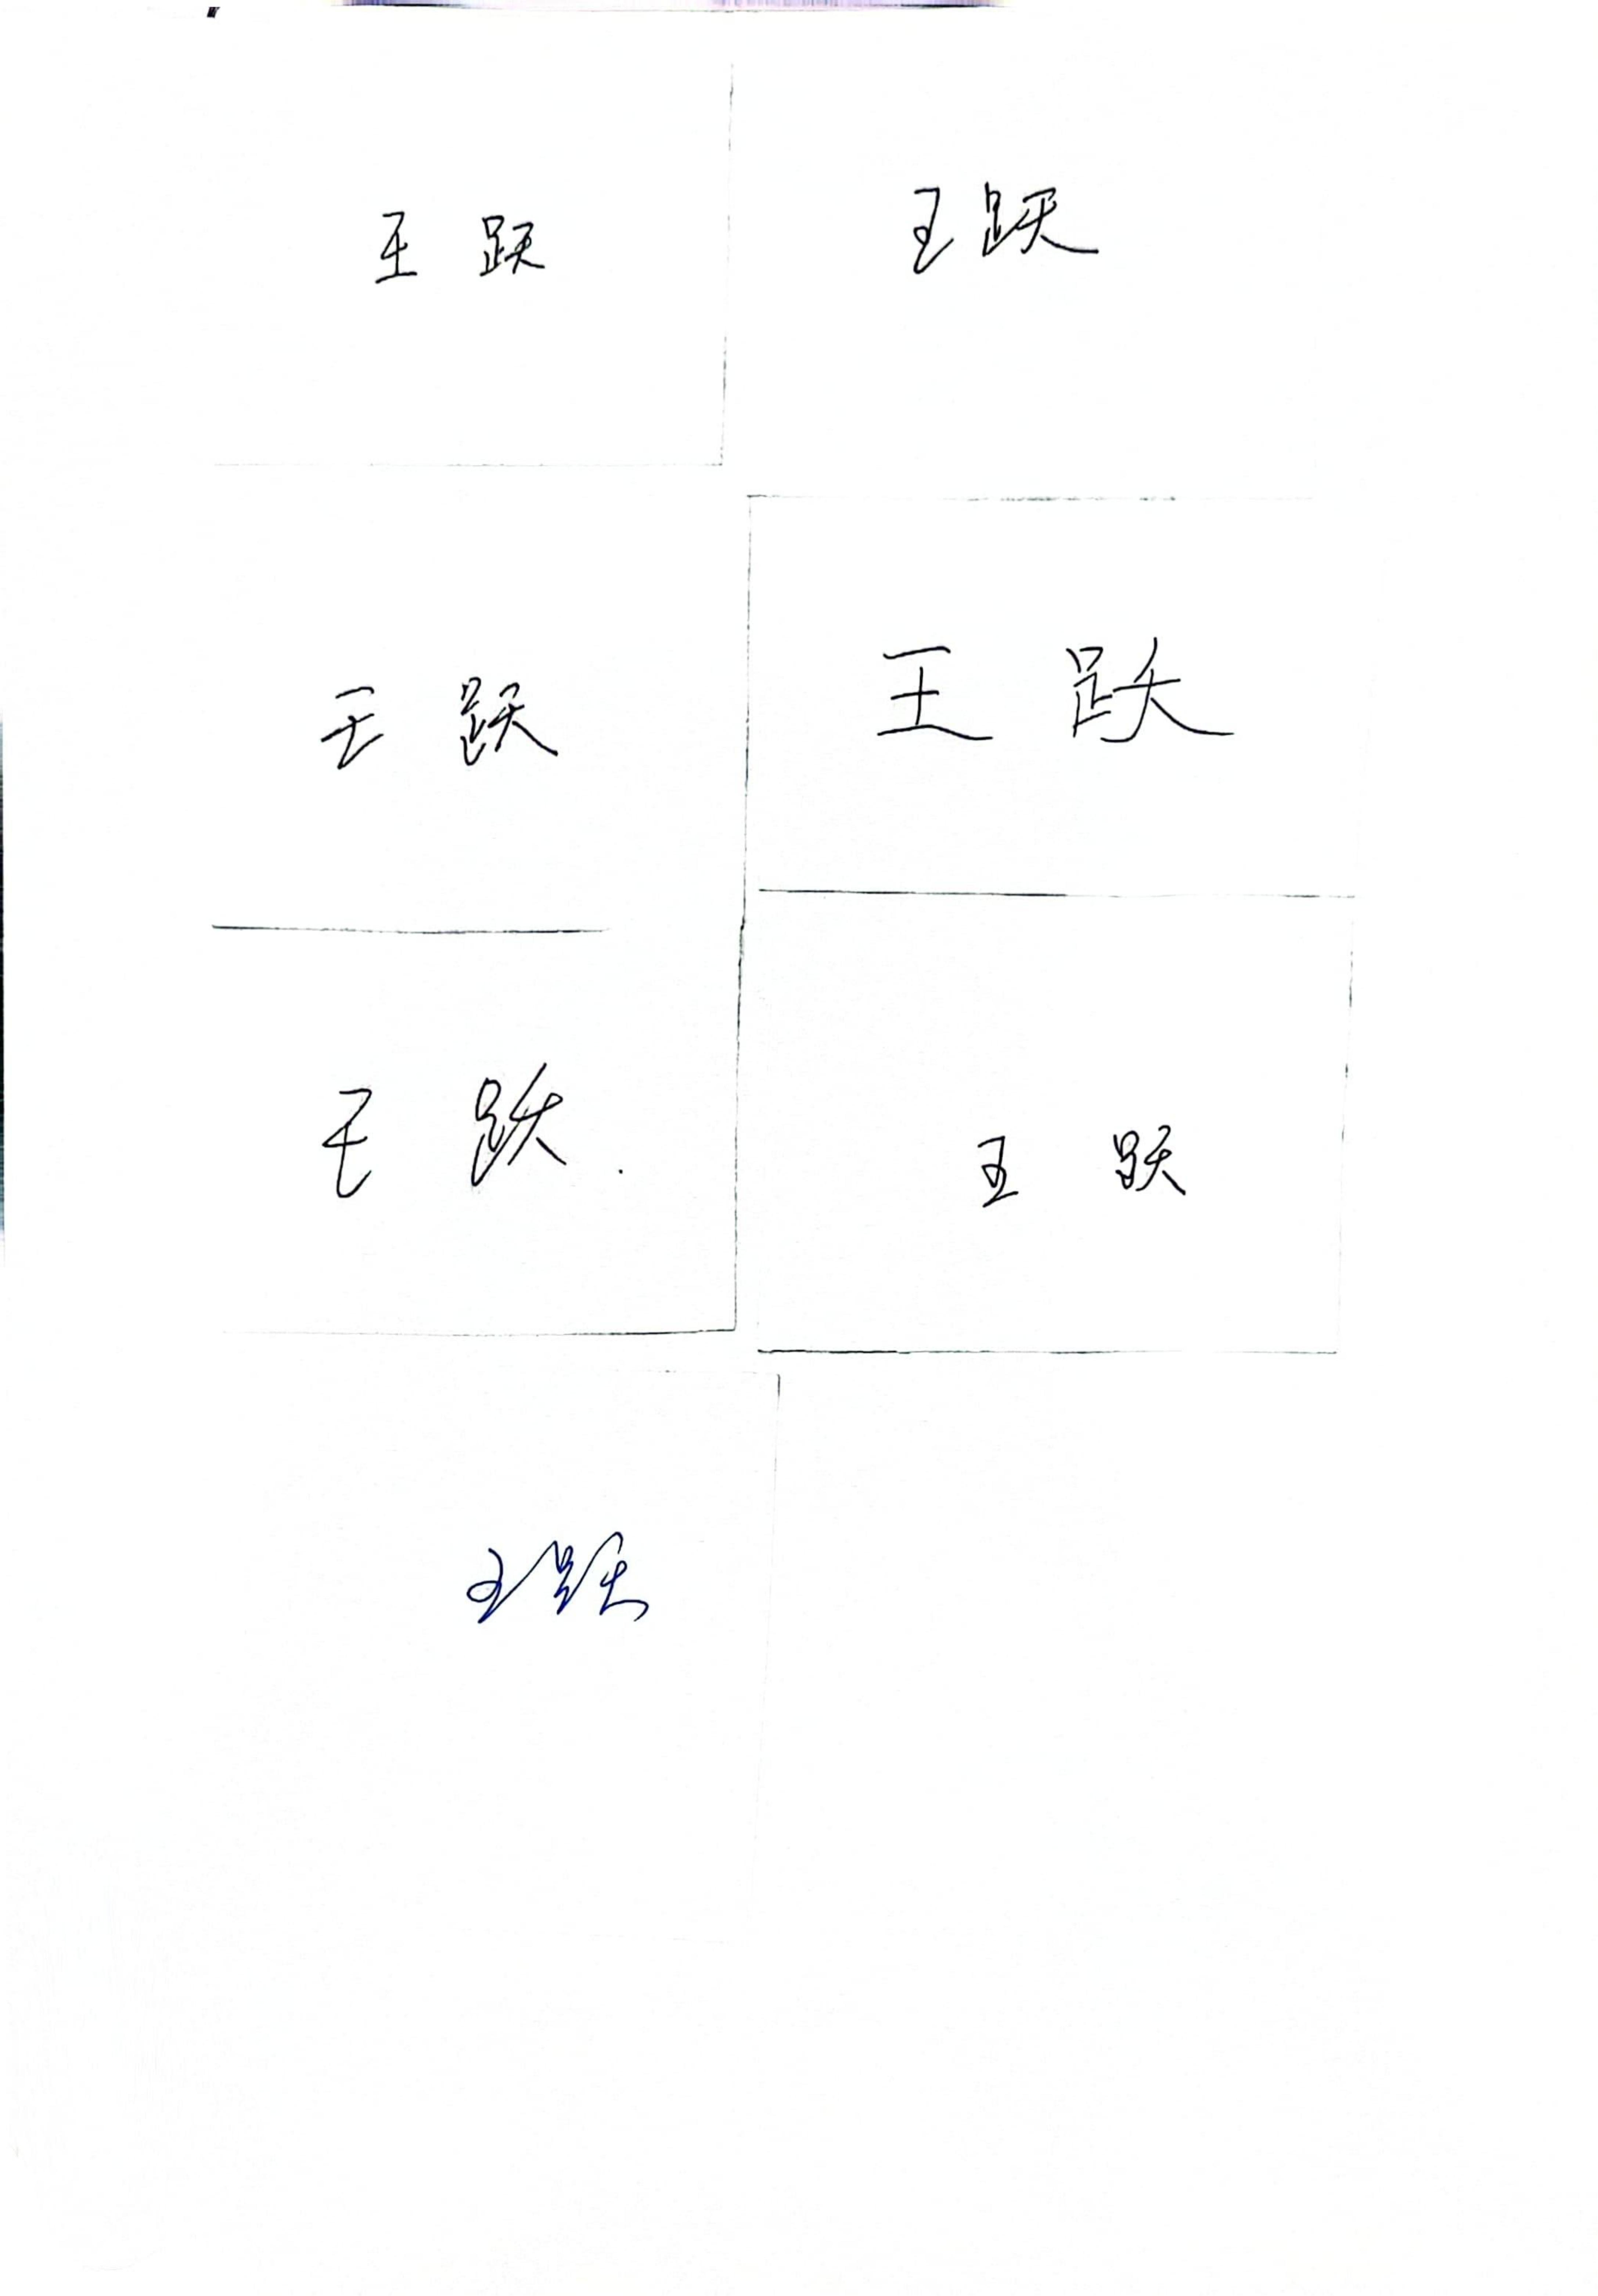 王跃
王跃
王跃
王跃
王跃.
王跃
王跃